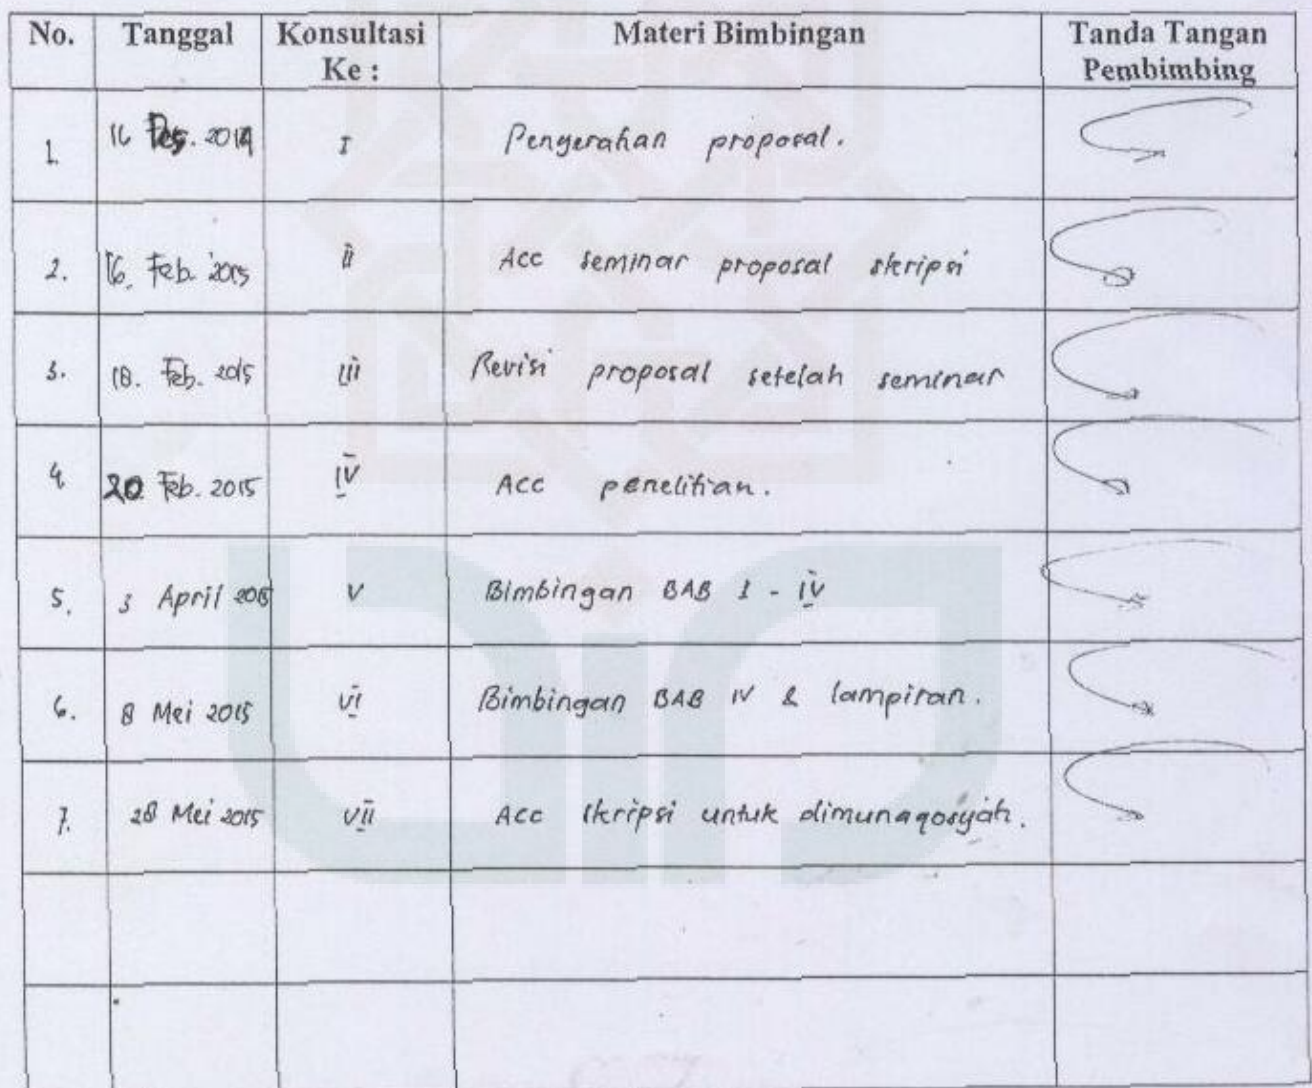 No. Tanggal Konsultasi Ke : Materi Bimbingan Tanda Tangan Pembimbing
1. 16 Des. 2014 I Pengerahan proposal.
2. 16. Feb. 2015 II Acc seminar proposal skripsi
3. 18. Feb. 2015 III Revisi proposal setelah seminar
4 20 Feb. 2015 IV Acc penelitian.
5. 3 April 2015 V Bimbingan BAB I - IV
6. 8 Mei 2015 VI Bimbingan BAB IV & lampiran.
7. 28 Mei 2015 VII Acc skripsi untuk dimunaqosyah.